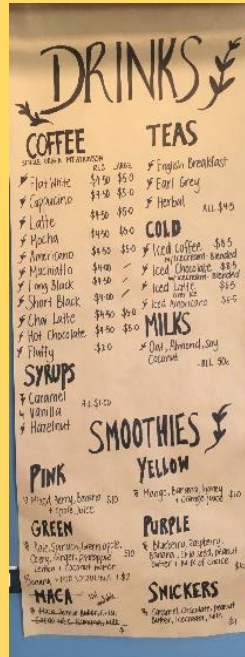 DRINKS
COFFEE
SINGLE ORIGIN MT ATKINSON
REG LARGE
Flat White $4.50 $5.0
Capucino $4.50 $5.0
Latte $4.50 $5.0
Mocha $4.50 $5.0
Americano $4.50 $5.0
Macchiatto $4.00 /
Long Black $4.50 /
Short Black $4.00 /
Chai Latte $4.50 $5.0
Hot Chocolate $4.50 $5.0
Fluffy $2.0
SYRUPS
Caramel
Vanilla ALL $1.00
Hazelnut
TEAS
English Breakfast
Earl Grey
Herbal ALL $4.5
COLD
Iced Coffee $8.5
w/ icecream - Blended
Iced Chocolate $8.5
w/ icecream - Blended
Iced Latte $6.5
Iced Americano
MILKS
Oat, Almond, Soy
Coconut - ALL 50c
SMOOTHIES
PINK
Mixed Berry, Banana $10
+ apple Juice
YELLOW
Mango, Banana, honey
+ orange juice $10
GREEN
Kale, Spinach, Green apple,
Celery, Ginger, pineapple $10
Lemon + Coconut water
PURPLE
Blueberry, Raspberry,
Banana, Chia seed, peanut
butter + Milk of choice
MACA
SNICKERS
Caramel, chocolate, peanut
butter, icecream, milk